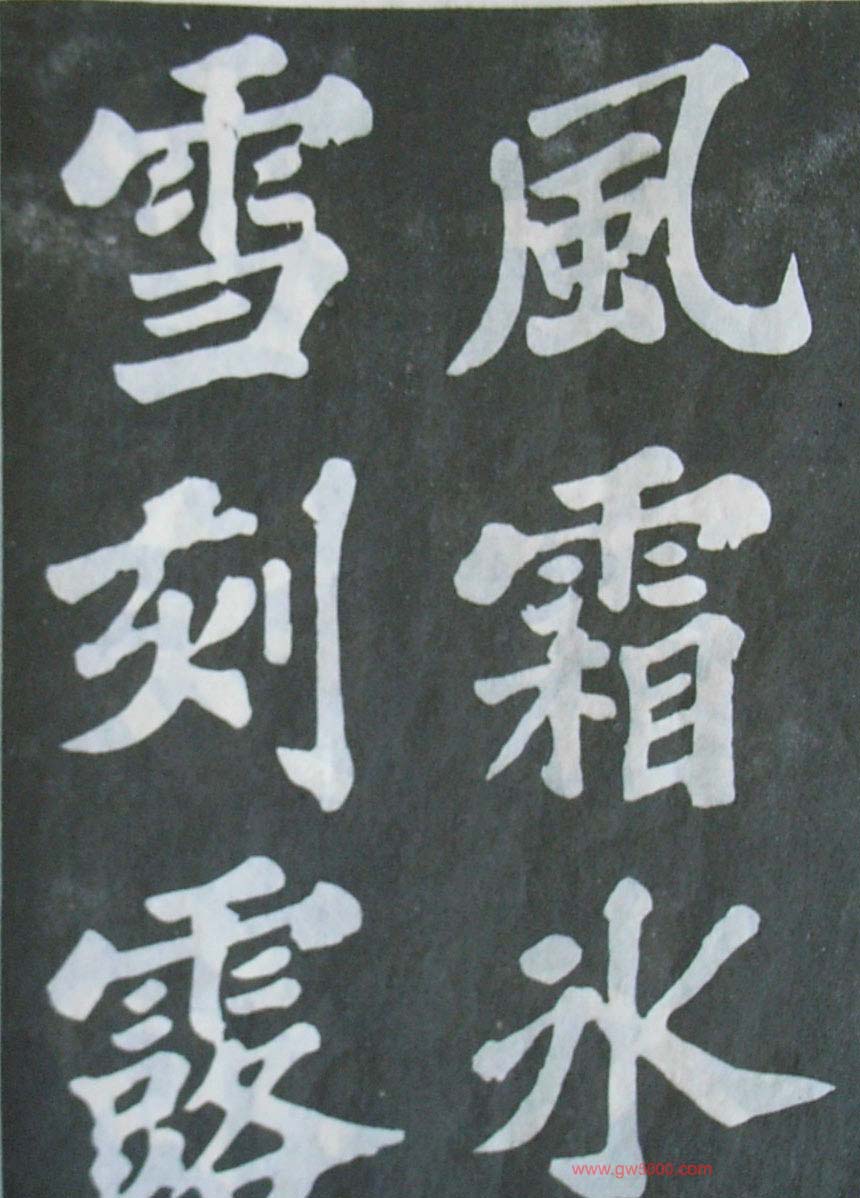 風霜氷
雪刻露
www.gw5000.com